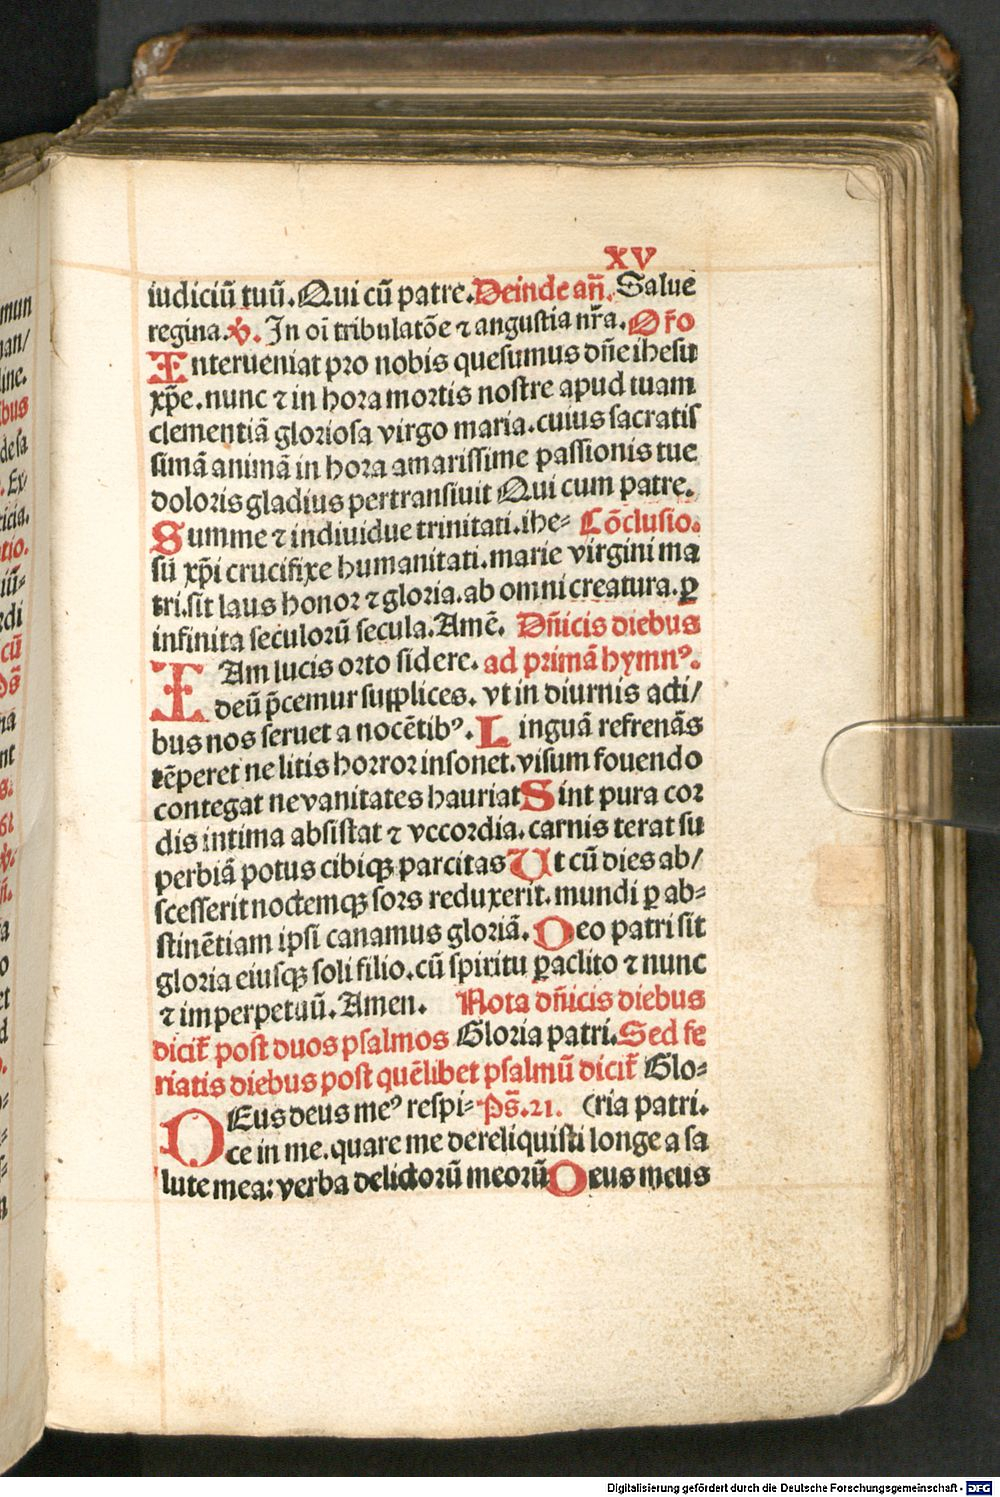 XV
iudiciū tuū. Qui cū patre. Deinde añ. Salue
regina. ꝟ. In oī tribulatōe ⁊ angustia nr̄a. Or̄o
Interueniat pro nobis quesumus dn̄e ihesu
xp̄e. nunc ⁊ in hora mortis nostre apud tuam
clementiā gloriosa virgo maria. cuius sacratis
simā animā in hora amarissime passionis tue
doloris gladius pertransiuit Qui cum patre.
Summe ⁊ indiuidue trinitati. ihe= Cōclusio.
sū xp̄i crucifixe humanitati. marie virgini ma
tri. sit laus honor ⁊ gloria. ab omni creatura. ꝑ
infinita seculorū secula. Amē. Dn̄icis diebus
IAm lucis orto sidere. ad primā hymnꝰ.
deū p̄cemur supplices. vt in diurnis acti/
bus nos seruet a nocētibꝰ. Linguā refrenās
tēperet ne litis horror insonet. visum fouendo
contegat ne vanitates hauriat Sint pura cor
dis intima absistat ⁊ vccordia. carnis terat su
perbiā potus cibiqꝫ parcitas Ut cū dies ab/
scesserit noctemqꝫ sors reduxerit. mundi ꝑ ab=
stinētiam ipsi canamus gloriā. Deo patri sit
gloria eiusqꝫ soli filio. cū spiritu ꝑaclito ⁊ nunc
⁊ imperpetuū. Amen. Nota dn̄icis diebus
dicit̄ post duos psalmos Gloria patri. Sed fe
riatis diebus post quēlibet psalmū dicit̄ Glo=
DEus deus meꝰ respi= Ps̄. 21. (ria patri.
ce in me. quare me dereliquisti longe a sa
lute mea: verba delictorū meorū Deus meus
Digitalisierung gefördert durch die Deutsche Forschungsgemeinschaft - DFG